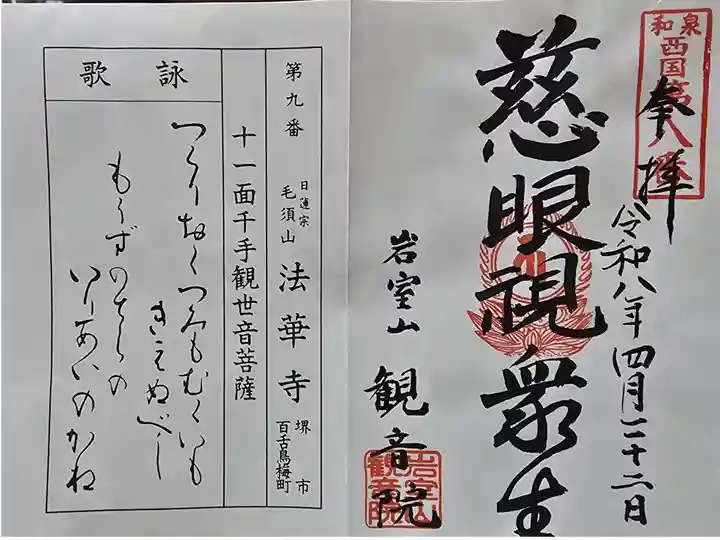 和泉
西国第八番
奉拝
令和八年四月二十二日
慈眼視衆生
岩室山
観音院
岩室山
観音院
第九番
日蓮宗
毛須山
法華寺
堺市
百舌鳥梅町
十一面千手観世音菩薩
詠歌
つくりおくつみもむくいも
きえぬべし
もずのてらの
いりあいのかね